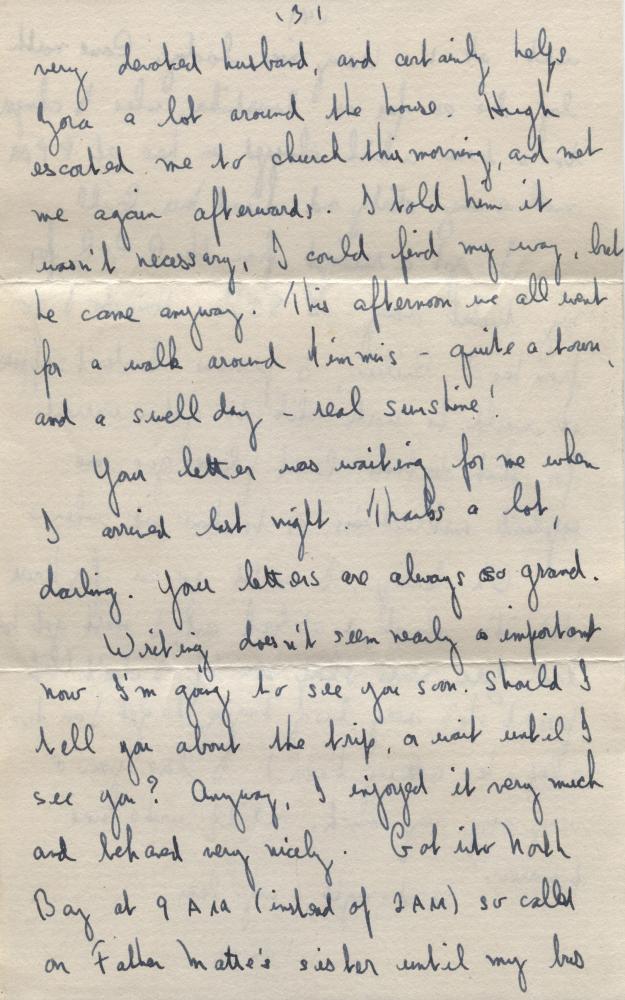 (3)
very devoted husband, and certainly helps
Zora a lot around the house. Hugh
escorted me to church this morning, and met
me again afterwards. I told him it
wasn't necessary, I could find my way, but
he came anyway. This afternoon we all went
for a walk around Timmins - quite a town,
and a swell day - real sunshine!
Your letter was waiting for me when
I arrived last night. Thanks a lot,
darling. Your letters are always so grand.
Writing doesn't seem nearly as important
now I'm going to see you soon. Should I
tell you about the trip, or wait until I
see you? Anyway, I enjoyed it very much
and behaved very nicely. Got into North
Bay at 9 AM (instead of 2 AM) so called
on Father sister until my bus